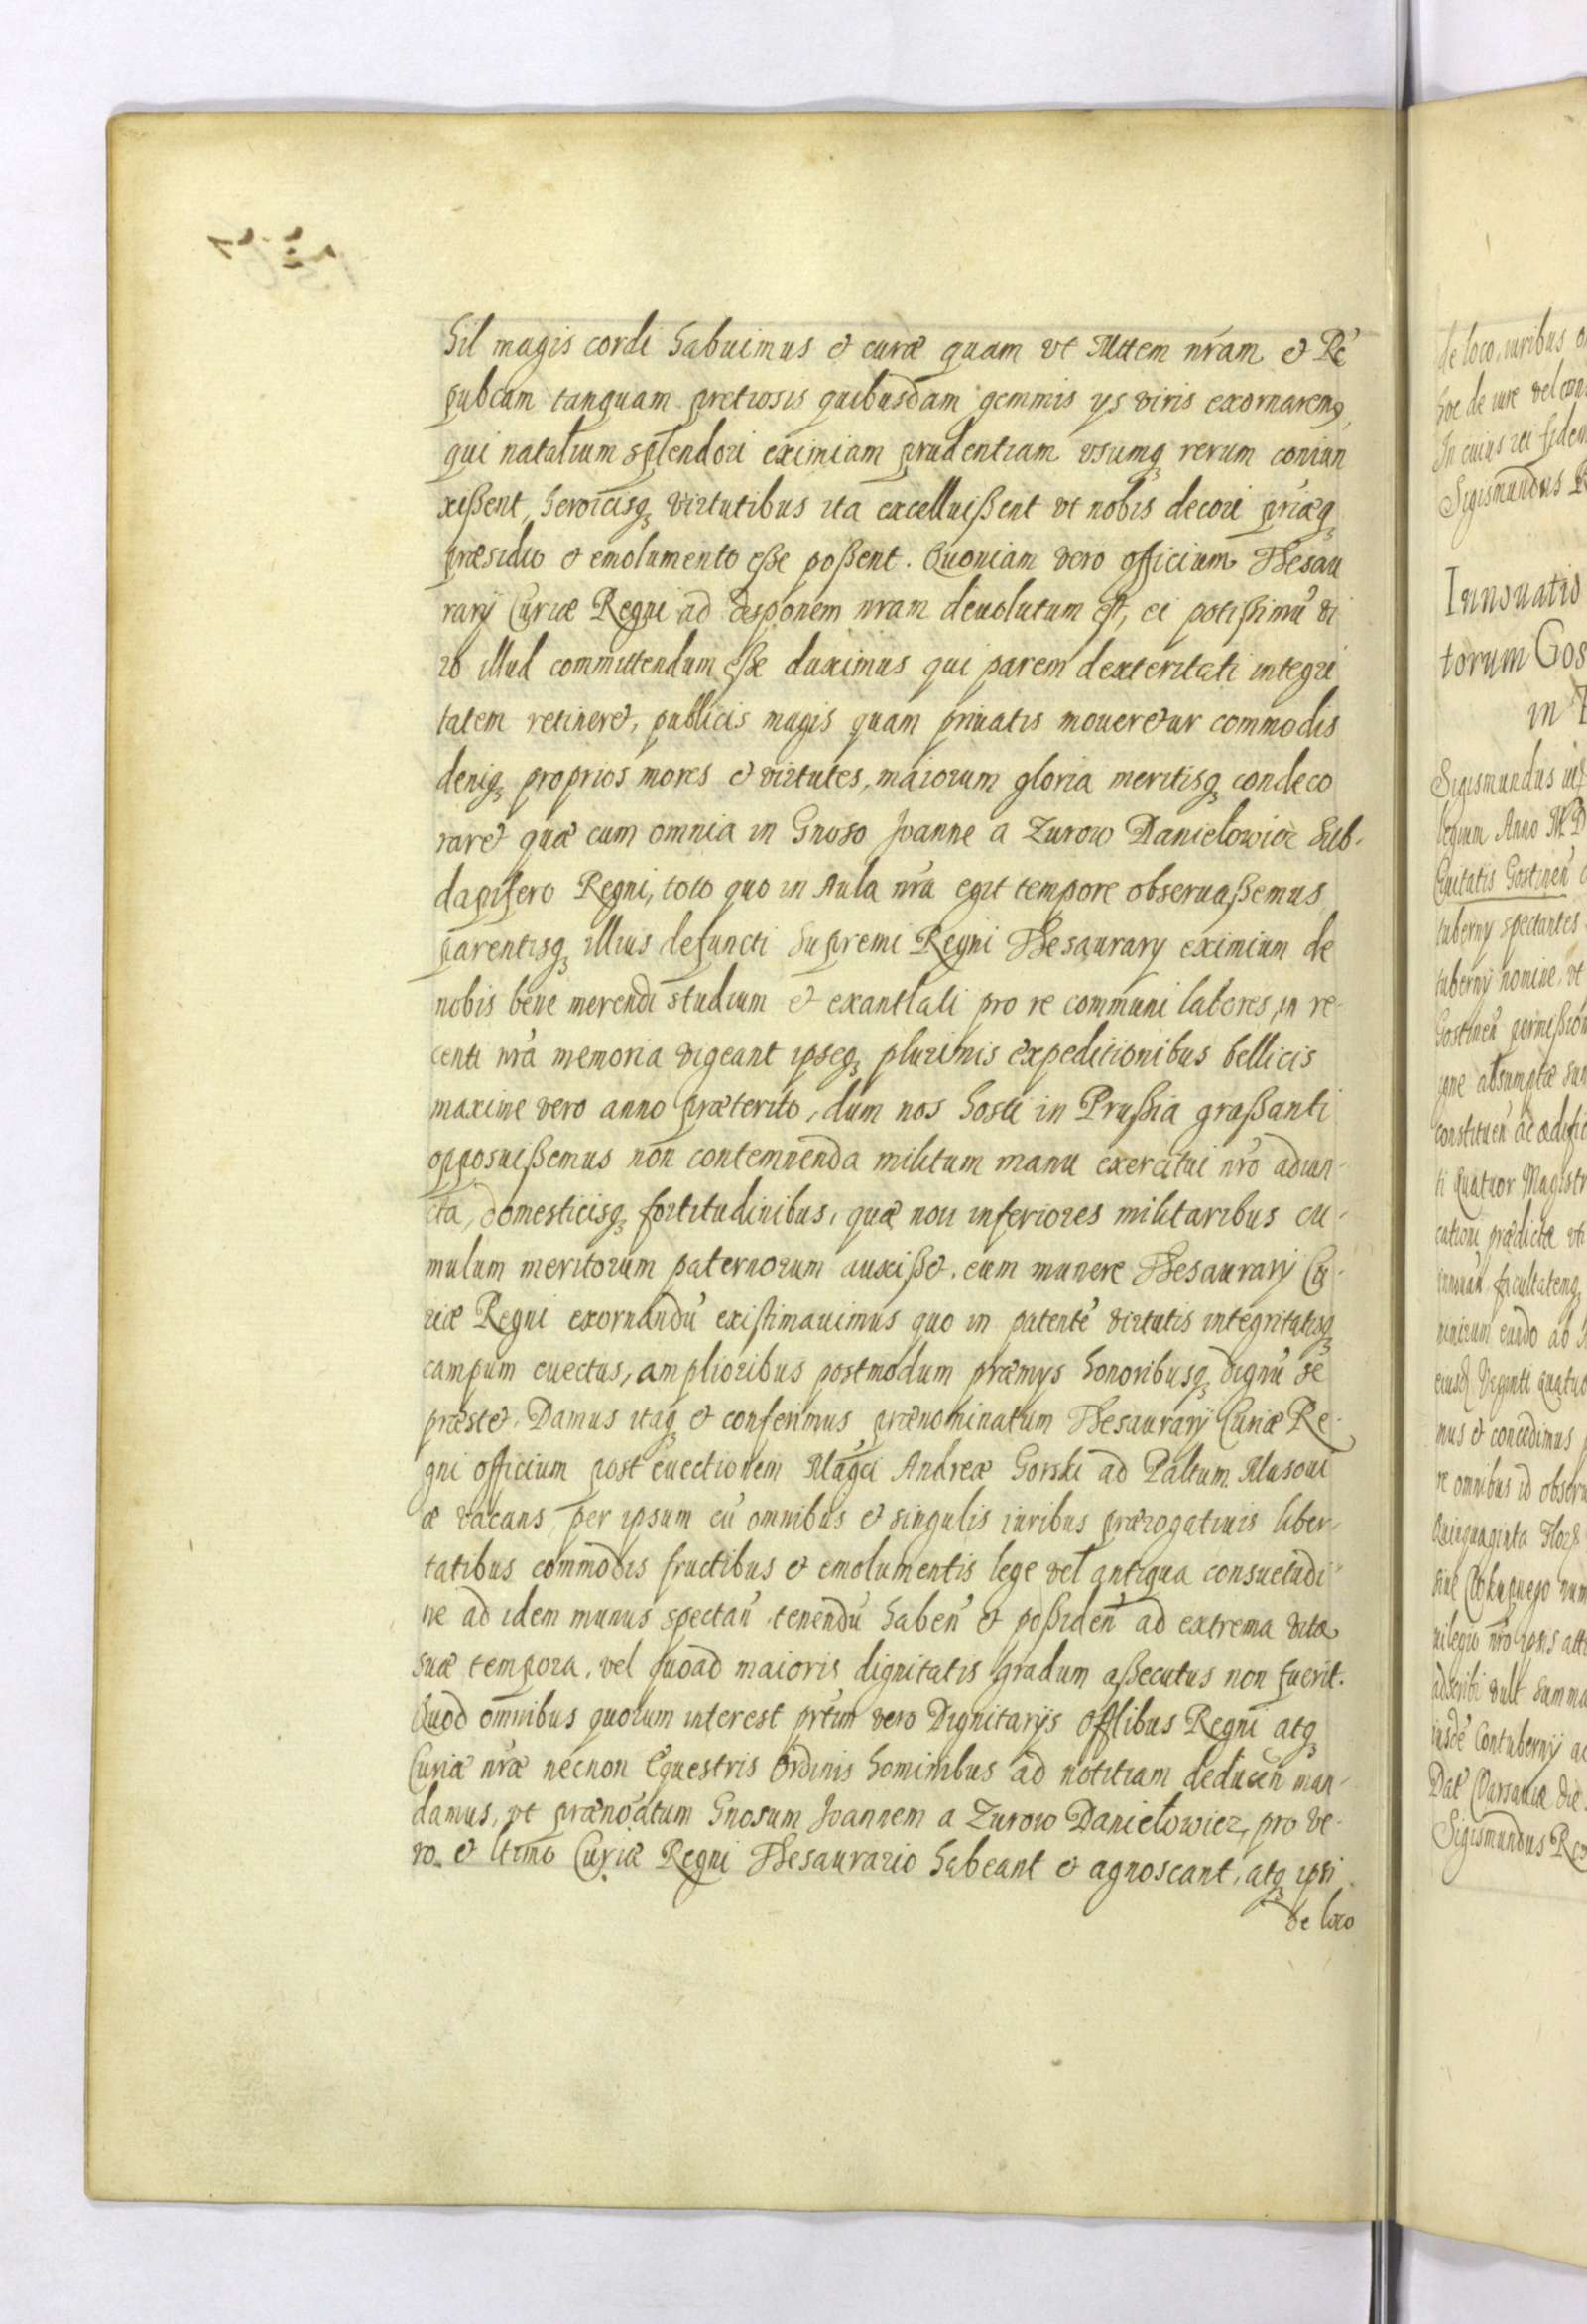 hil magis cordi habuimus et curæ quam vt Mttem nrãm et Re
pubcam tanquam pretiosis quibusdam gemmis ys viris exornaremq,
qui natalium splendori eximiam prudentiam vsumq rerum coniun
xißent, heroicisq virtutibus ita excelluißent vt nobis decori priæq
præsidio et emolumento eße poßent. Quoniam vero officium Thesau
rarij Curiæ Regni ad disponem nram deuolutum est, ei potißimu vi
ro illud committendum eße duximus qui parem dexteritati integri
tatem retineret, publicis magis quam priuatis moueretur commodis
deniq proprios mores et virtutes, maiorum gloria meritisq condeco
raret quæ cum omnia in Gnoso Joanne a Zurow Danielowicz Sub-
dapifero Regni, toto quo in Aula nra egit tempore obseruaßemus
parentisq illius defuncti Supremi Regni Thesaurary eximium de
nobis bene merendi studium et exantlati pro re communi labores, in re-
centi nra memoria vigeant ipseq plurimis expeditionibus bellicis
maxine vero anno præterito, dum nos hosti in Prußia graßanti
opposuißemus non contemnenda militum manu exercitui nro adiun-
cta, domesticisq fortitudinibus, quæ non inferiores militaribus cu-
mulum meritorum paternorum auxißet, eum munere Thesaurarij Cu-
riæ Regni exornandu existimauimus quo in patente virtutis integritatisq
campum euectus, amplioribus postmodum præmys honoribusq dignu se
præstet. Damus itaq et conferimus prænominatum Thesaurarij Curiæ Re-
gni officium post euectionem Magci Andreæ Gorski ad Paltum Masoui
æ vacans, per ipsum cu omnibus et singulis iuribus prærogatiuis liber-
tatibus commodis fructibus et emolumentis lege vel antiqua consuetudi-
ne ad idem munus spectan tenendu haben et poßiden ad extrema vitæ
suæ tempora, vel quoad maioris dignitatis gradum aßecutus non fuerit.
Quod omnibus quorum interest prtim vero Dignitarijs Offlibus Regni atq
Curiæ nræ necnon Equestris Ordinis hominibus ad notitiam deducen man-
damus, vt prænoatum Gnosum Joannem a Zurow Danielowicz, pro ve-
ro et ltimo Curiæ Regni Thesaurario habeant et agnoscant, atq ipsi
de loco
de loco, iuribus
hoc de iure vel
In cuius rei fidem
Sigismundus
Innouatio
torum Gos
in
Sigismundus
legium Anno
Ciuitatis Gostinen
tuberny spectantes
tuberny nomine, vt
Gostinen permißion
igne absumptæ
constituen ac ædific
ti Quatuor Magistr
cationi prædicta
innouan facultatemq
eiusd Viginti quatuo
mus et concedimus
re omnibus id obseru
Quinquaginta
adscribi vult summa
iusde Contubernij
Dat Varsauiæ die
Sigismundus Rex